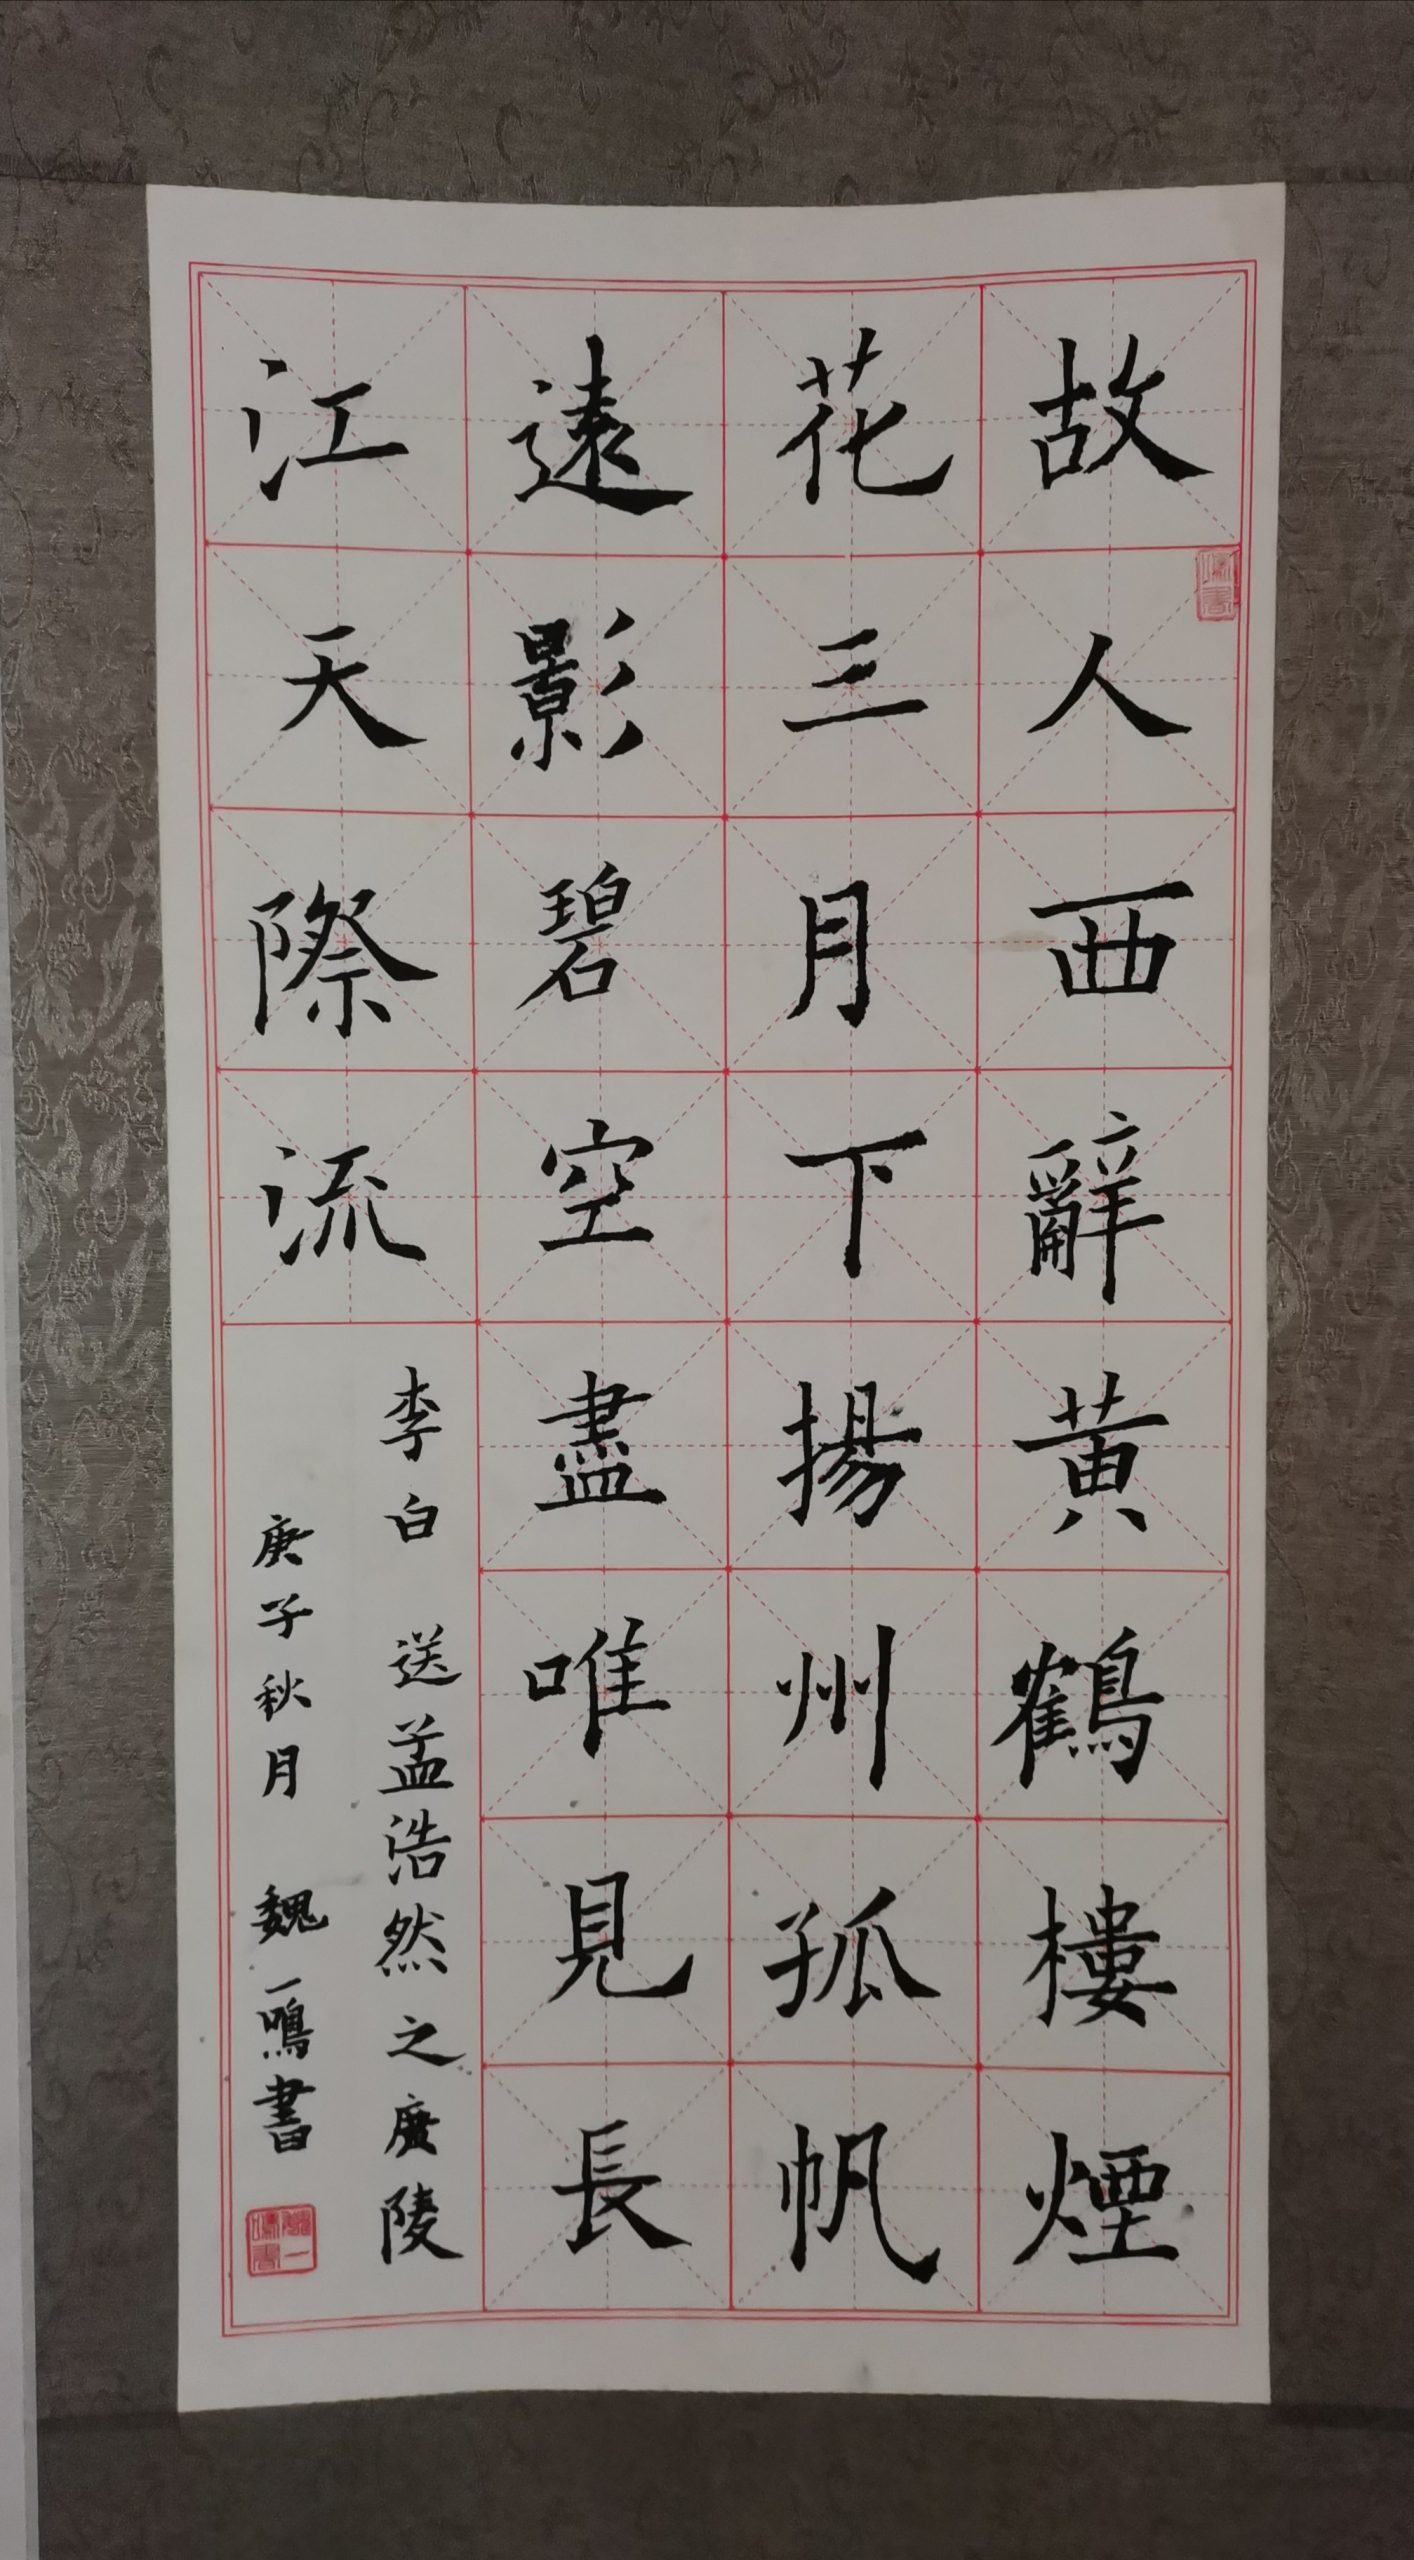 故人西辭黄鶴樓煙
花三月下揚州孤帆
遠影碧空盡唯見長
江天際流
李白 送孟浩然之廣陵
庚子秋月 魏一鳴書